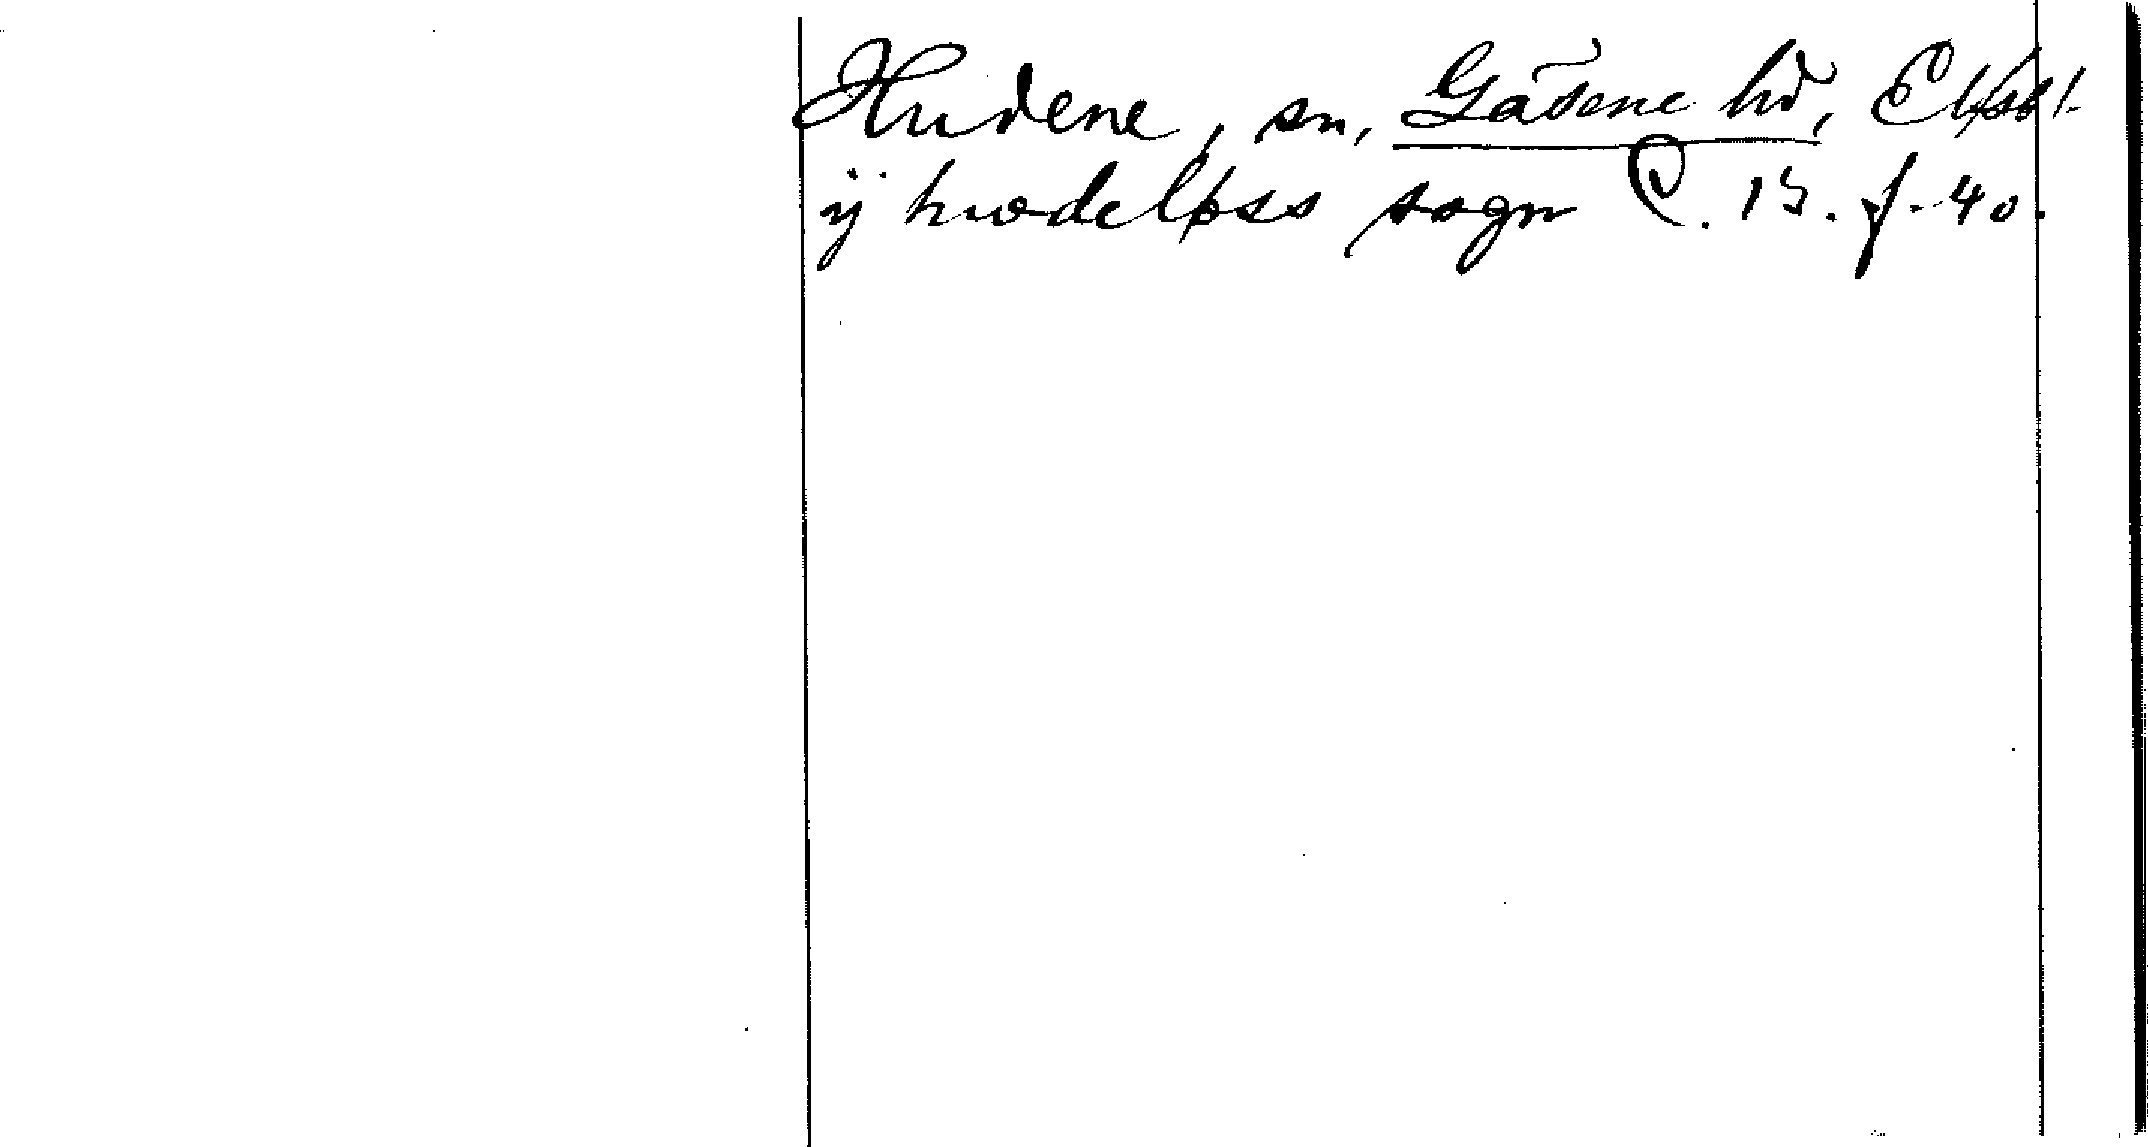 Hudene, sn, Gäsene hd, Elfsbl.
ÿ hwdeløss sogn C. 15. f. 40.